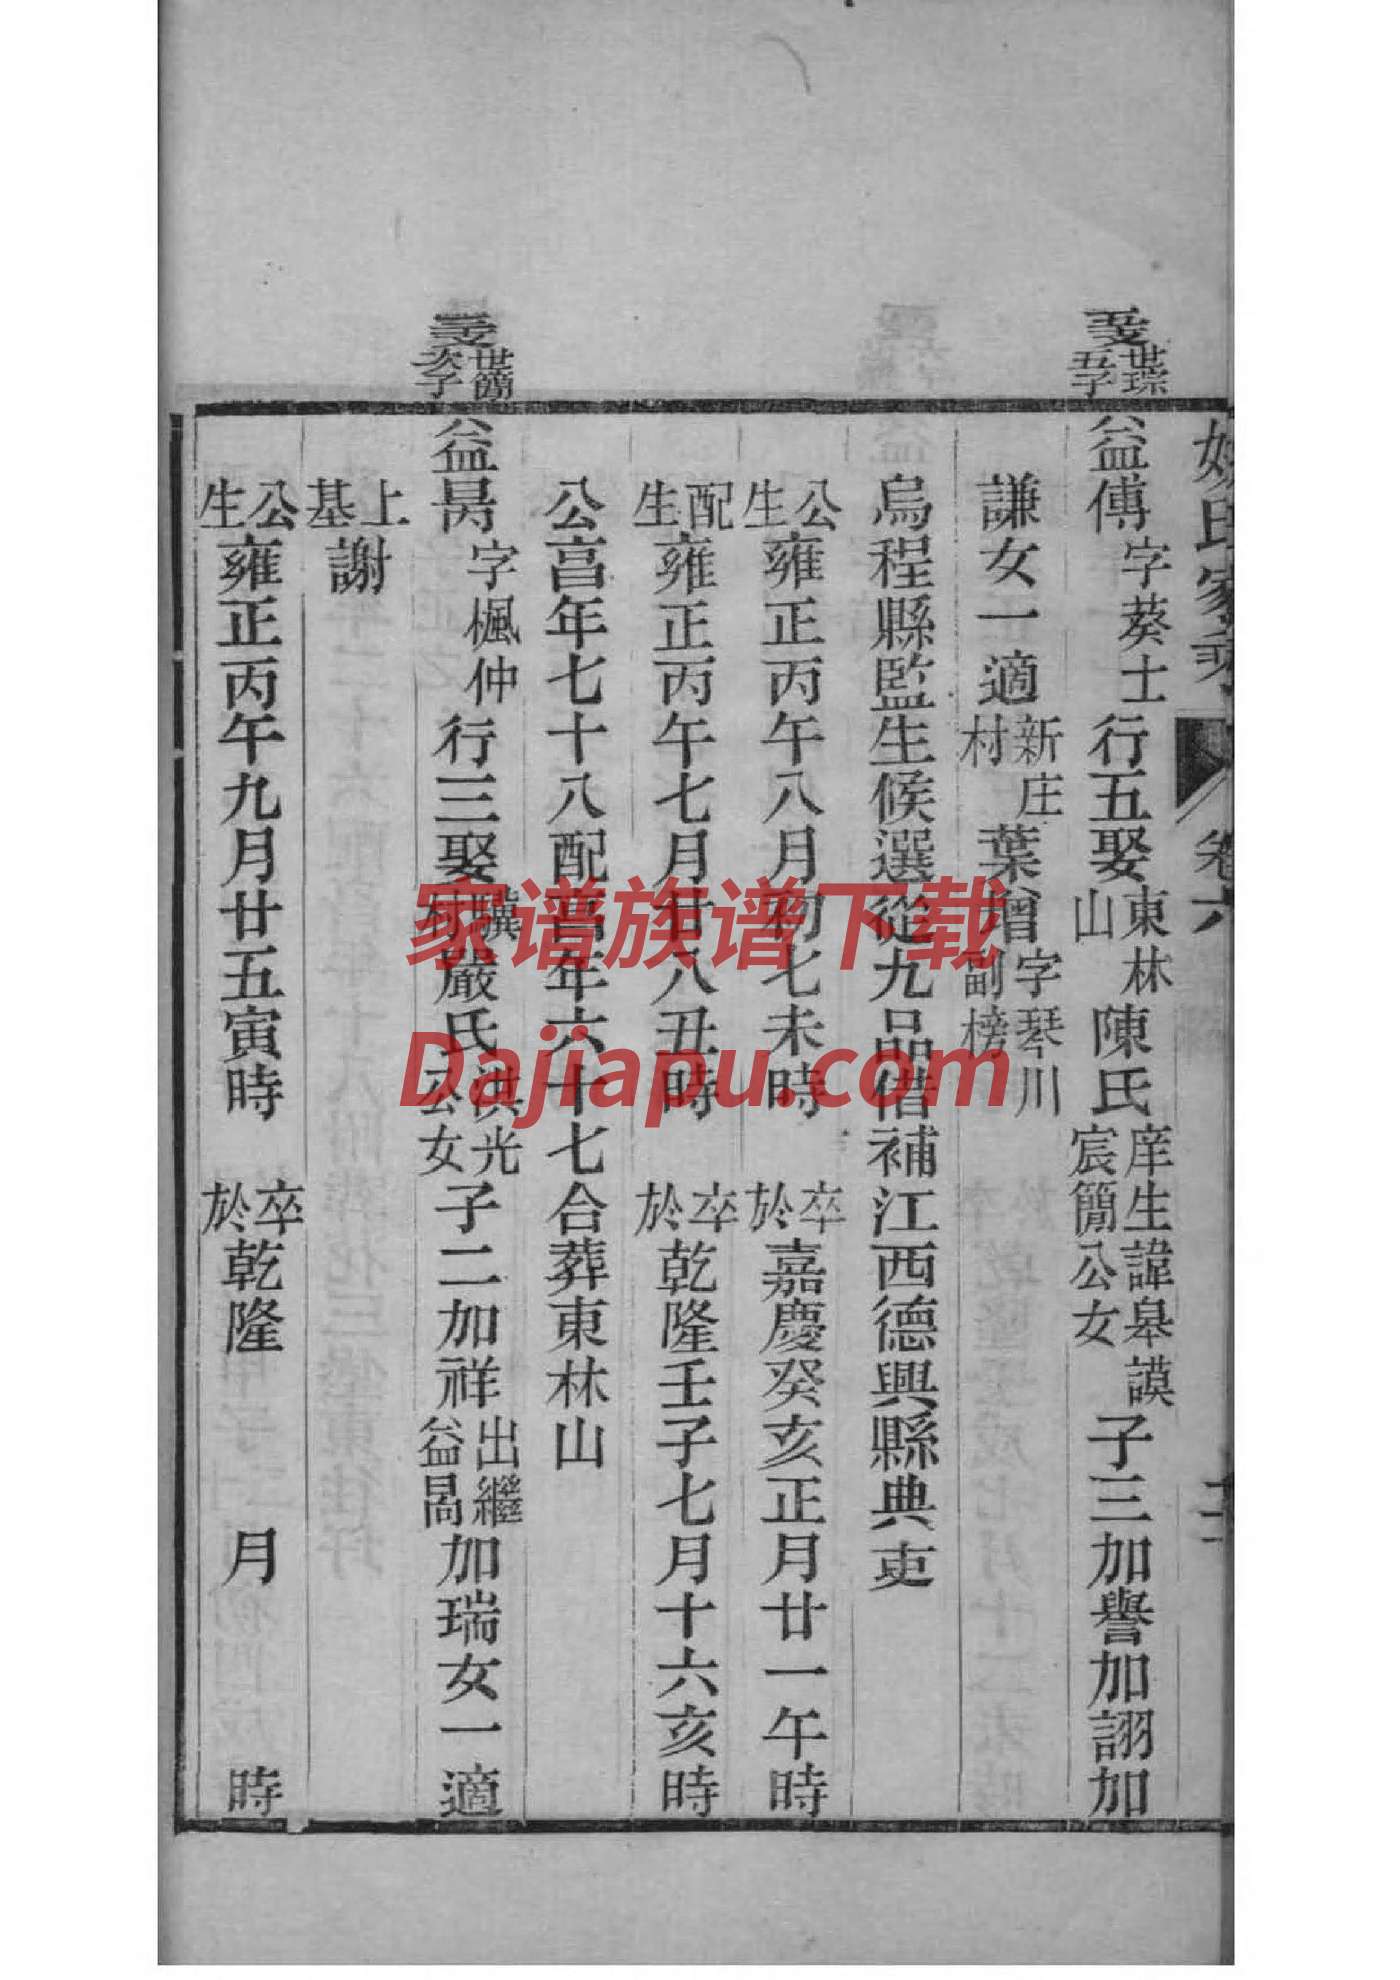 姚氏家乘
卷六
世琮
五子
益傅字葵士行五娶東林山陳氏庠生諱皋謨宸簡公女子三加譽加詡加
謙女一適新庄村葉增字琴川副榜
烏程縣監生候選從九品借補江西德興縣典吏
公生雍正丙午八月初七未時 卒於嘉慶癸亥正月廿一午時
配生雍正丙午七月廿八丑時 卒於乾隆壬子七月十六亥時
公享年七十八配享年六十七合葬東林山
世簡
次子
益昺字楓仲行三娶村嚴氏洪光公女子二加祥出繼益暠加瑞女一適
上基謝
公生雍正丙午九月廿五寅時 卒於乾隆 月 時
家谱族谱下载
Dajiapu.com